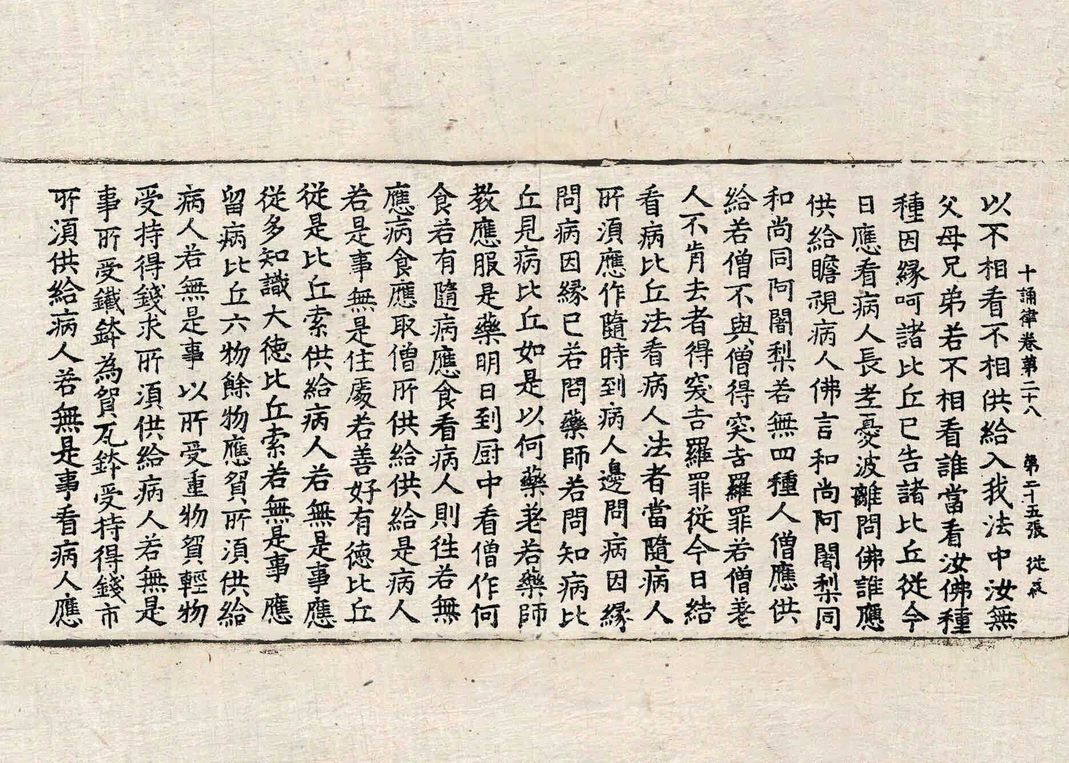 十誦律卷第二十八 第二十五張 從
以不相看不相供給入我法中汝無
父母兄弟若不相看誰當看汝佛種
種因緣呵諸比丘已告諸比丘從今
日應看病人長老憂波離問佛誰應
供給瞻視病人佛言和尚阿闍梨同
和尚同阿闍梨若無四種人僧應供
給若僧不與僧得突吉羅罪若僧差
人不肯去者得突吉羅罪從今日結
看病比丘法看病人法者當隨病人
所湏應作隨時到病人邊問病因緣
問病因緣已若問藥師若問知病比
丘見病比丘如是以何藥差若藥師
教應服是藥明日到厨中看僧作何
食若有隨病應食看病人則徃若無
應病食應取僧所供給供給是病人
若是事無是住處若善好有德比丘
從是比丘索供給病人若無是事應
從多知識大德比丘索若無是事應
留病比丘六物餘物應貿所湏供給
病人若無是事以所受重物貿輕物
受持得錢求所湏供給病人若無是
事所受鐵鉢為貿瓦鉢受持得錢市
所湏供給病人若無是事看病人應